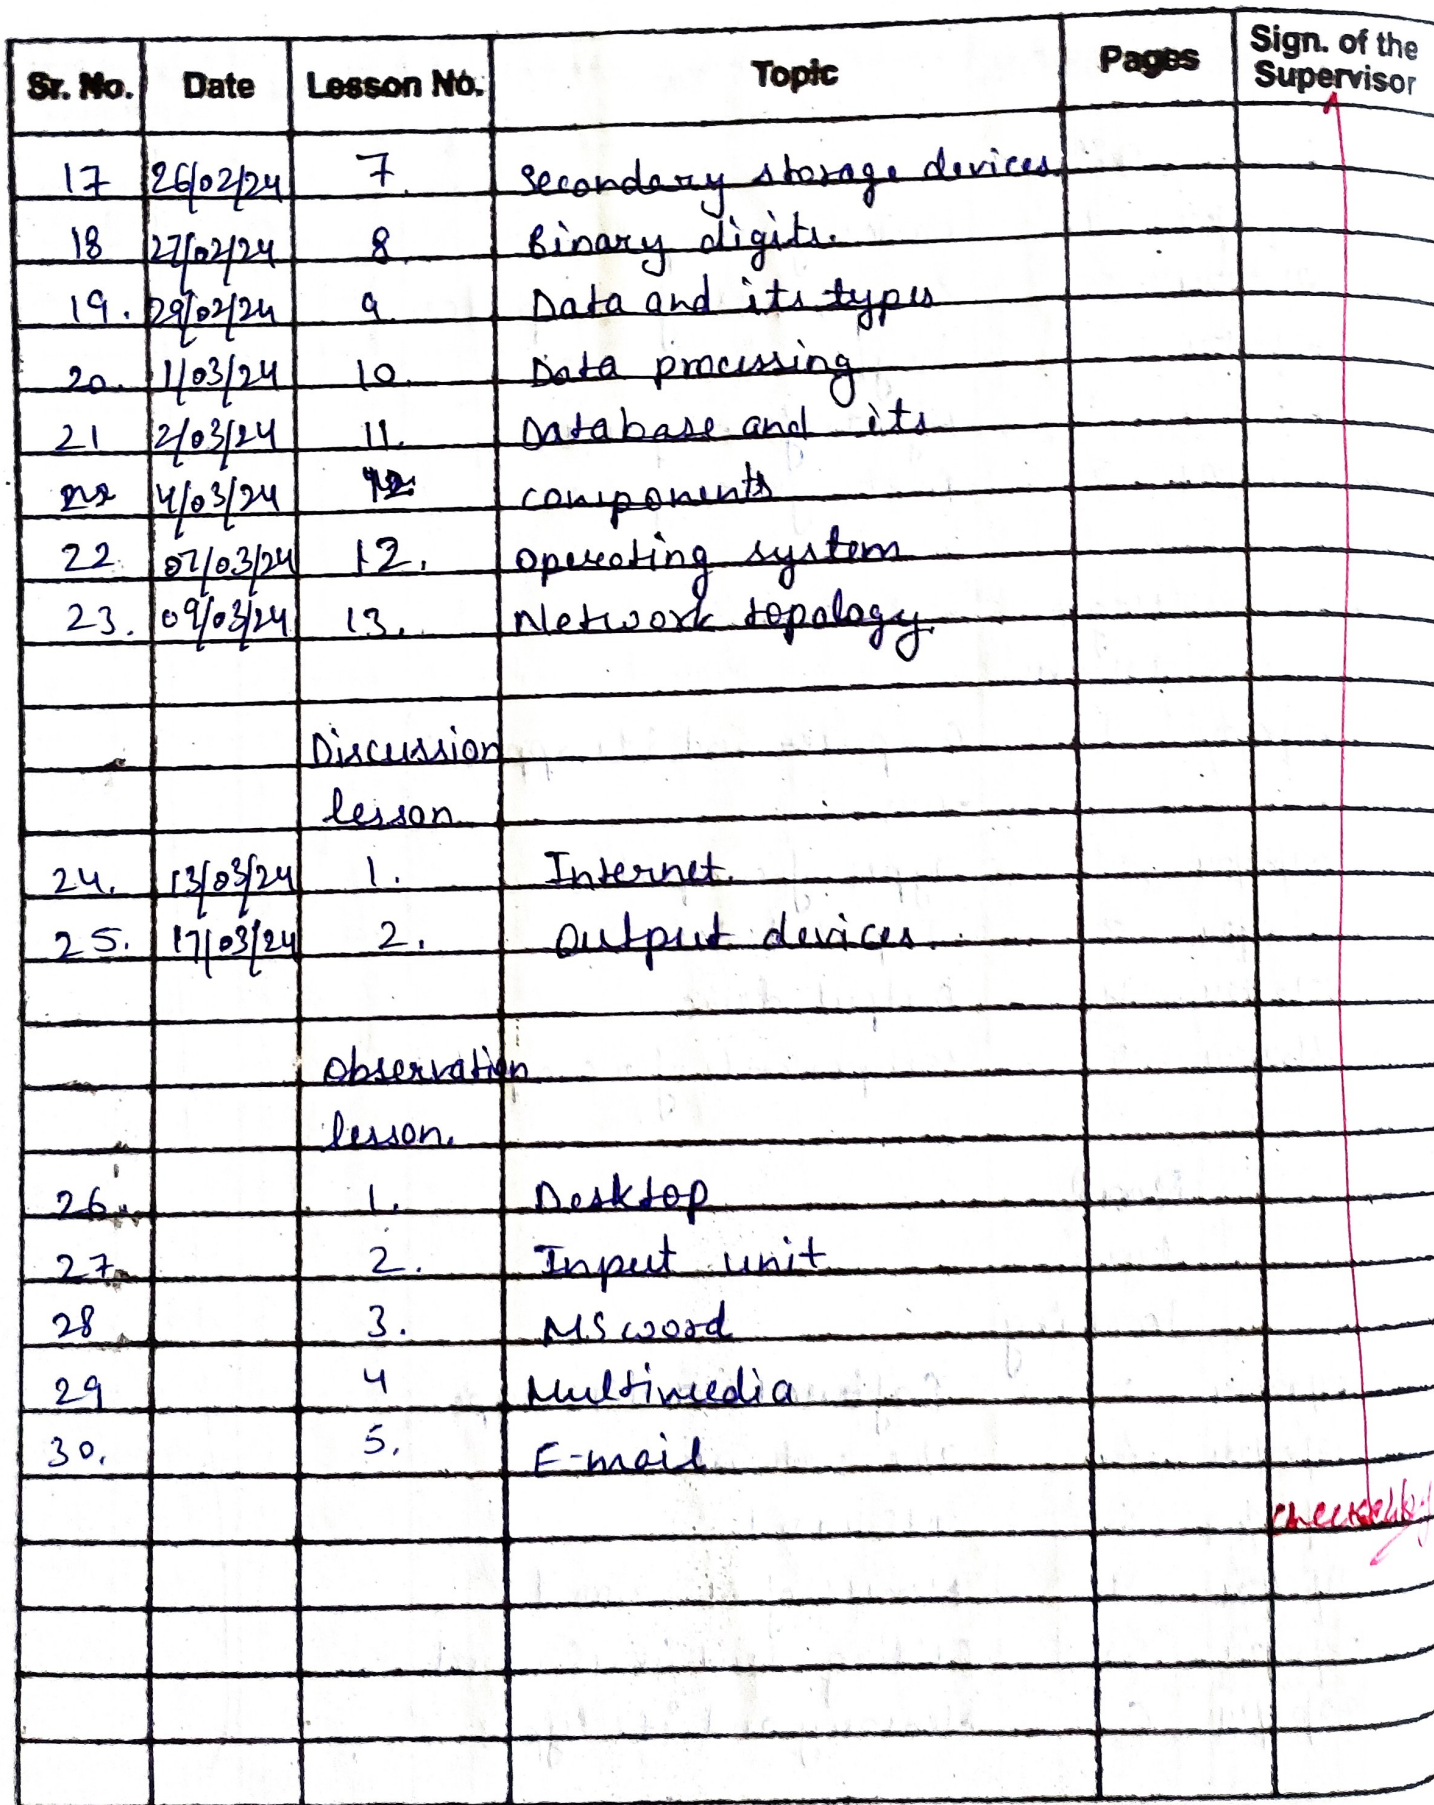 Sr. No. Date Lesson No. Topic Pages Sign. of the Supervisor
17 26/02/24 7. Secondary storage devices
18 27/02/24 8. Binary digits.
19. 29/02/24 9. Data and its types
20. 1/03/24 10. Data processing
21 2/03/24 11. Database and its
22 4/03/24 12. components
22. 07/03/24 12. Operating system
23. 09/03/24 13. Network topology.
Discussion
lesson
24. 13/03/24 1. Internet.
25. 17/03/24 2. Output devices.
Observation
lesson.
26. 1. Desktop
27. 2. Input unit
28 3. MS word
29 4 Multimedia
30. 5. E-mail
checked